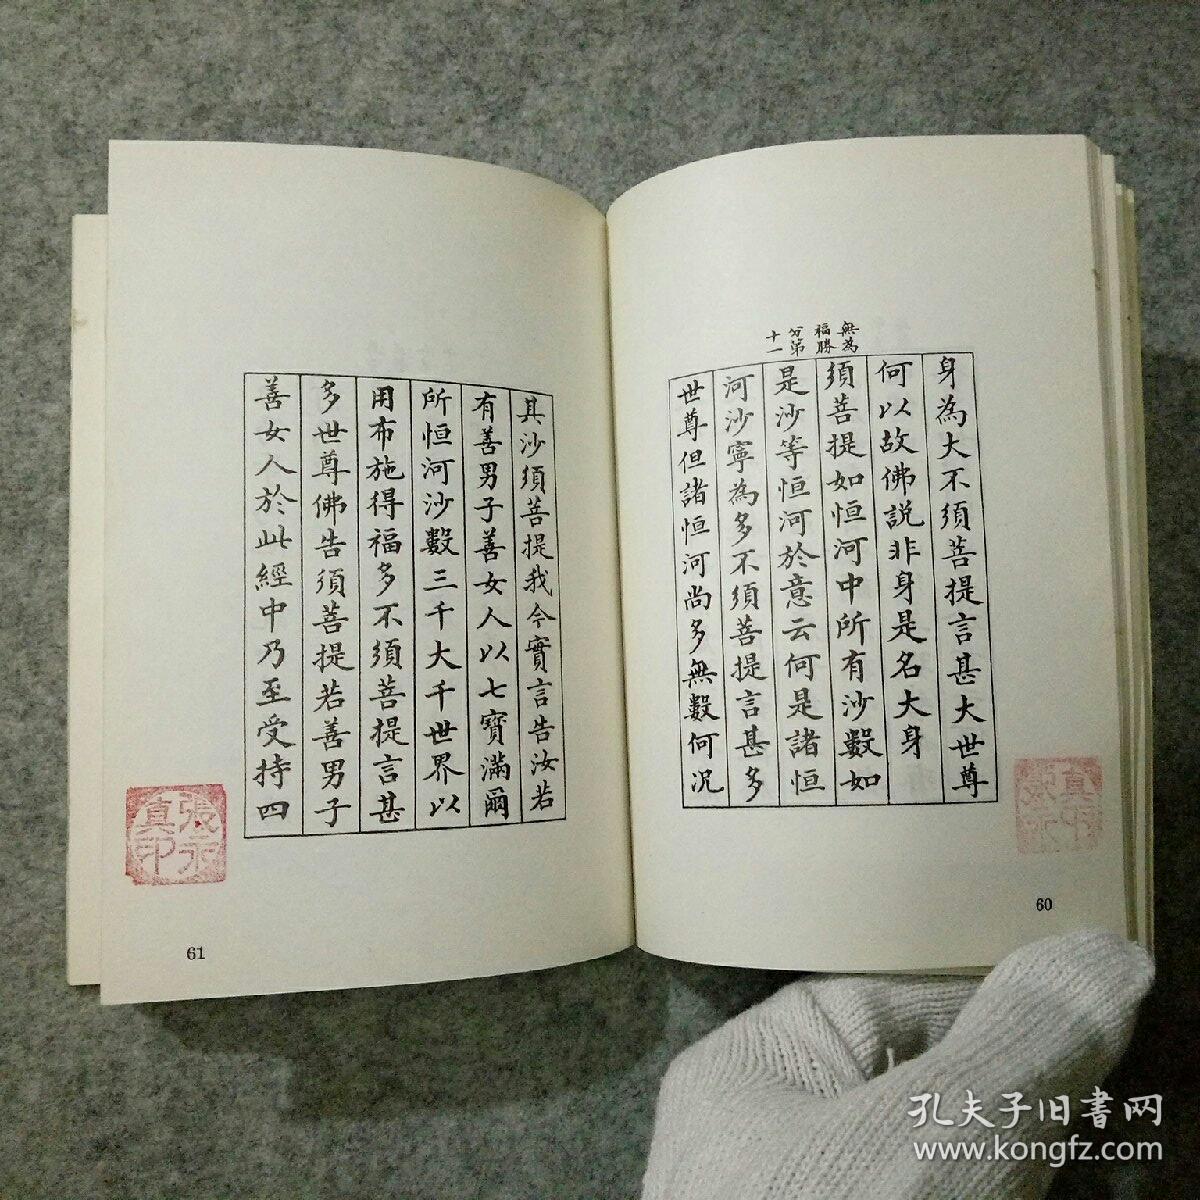 無為
福勝
分第
十一
身為大不須菩提言甚大世尊
何以故佛說非身是名大身
須菩提如恒河中所有沙數如
是沙等恒河於意云何是諸恒
河沙寧為多不須菩提言甚多
世尊但諸恒河尚多無數何況
60
其沙須菩提我今實言告汝若
有善男子善女人以七寶滿爾
所恒河沙數三千大千世界以
用布施得福多不須菩提言甚
多世尊佛告須菩提若善男子
善女人於此經中乃至受持四
張永
真印
61
孔夫子旧書网
www.kongfz.com